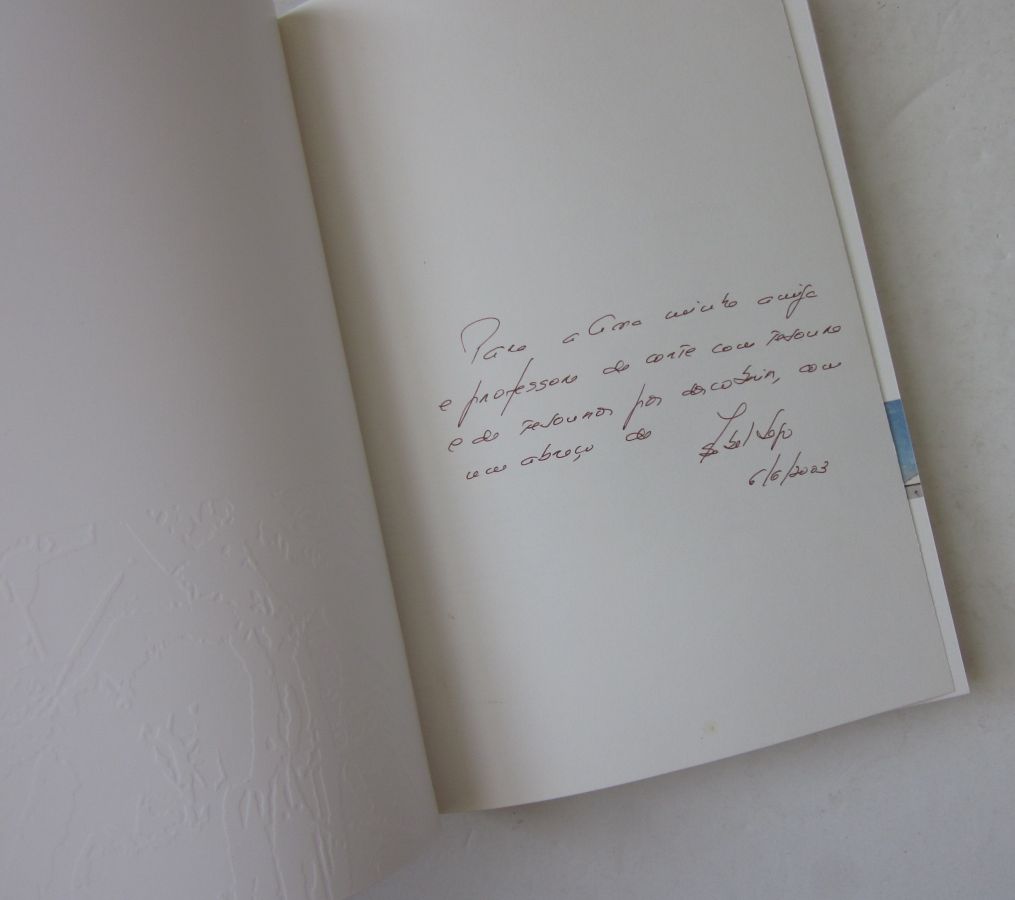 Para a minha amiga
e professora de corte com tesoura
e de tesouros por descobrir, com
um abraço de
6/6/2003